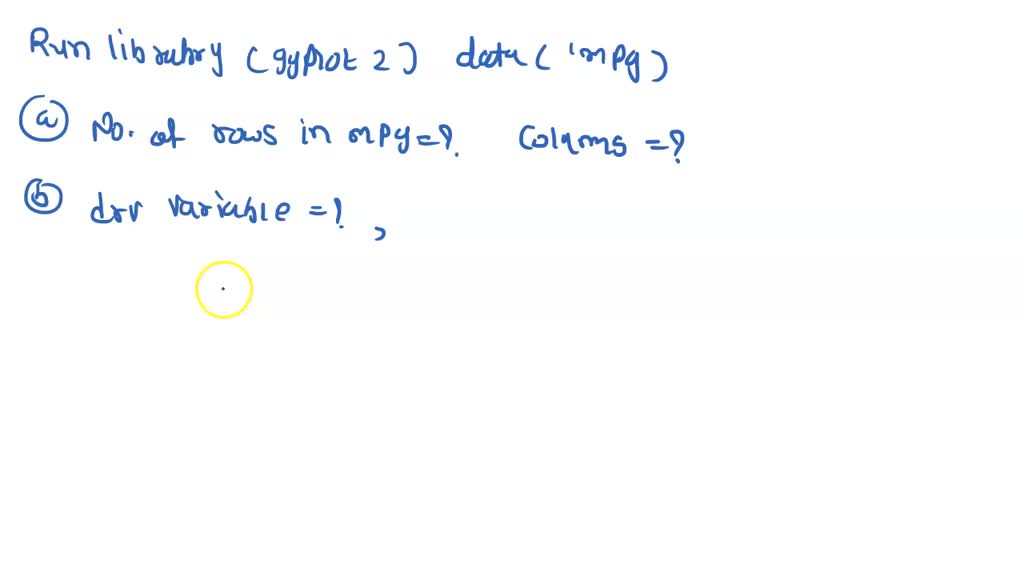 Run library (ggplot 2) data ('mpg)
(a) No. of rows in mpg=? Colqms =?
(b) drv variable =? ,